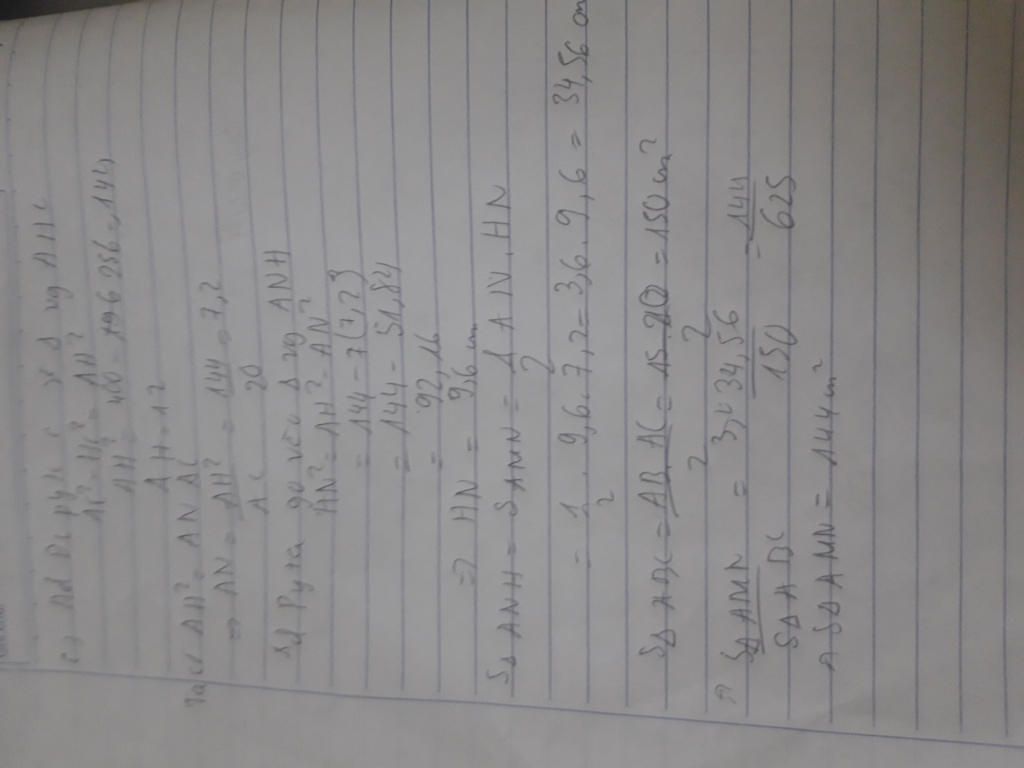 c) Ad Pi py tc x Δ vg AHC
AC² - HC² = AH²
AH² = 400 - 256 = 144
AH = 12
Ta có AH² = AN.AC
⇒ AN = AH²/AC = 144/20 = 7,2
Sd Pytago vào Δ vg ANH
HN² = AH² - AN²
= 144 - (7,2)²
= 144 - 51,84
= 92,16
⇒ HN = 9,6 cm
SΔANH = SAMN = 1/2 AN.HN
= 1/2 . 9,6.7,2 = 3,6.9,6 = 34,56 cm
SΔABC = AB.AC/2 = 15.20/2 = 150cm²
⇒ SΔAMN/SΔABC = 34,56/150 = 144/625
SΔAMN = 144cm²